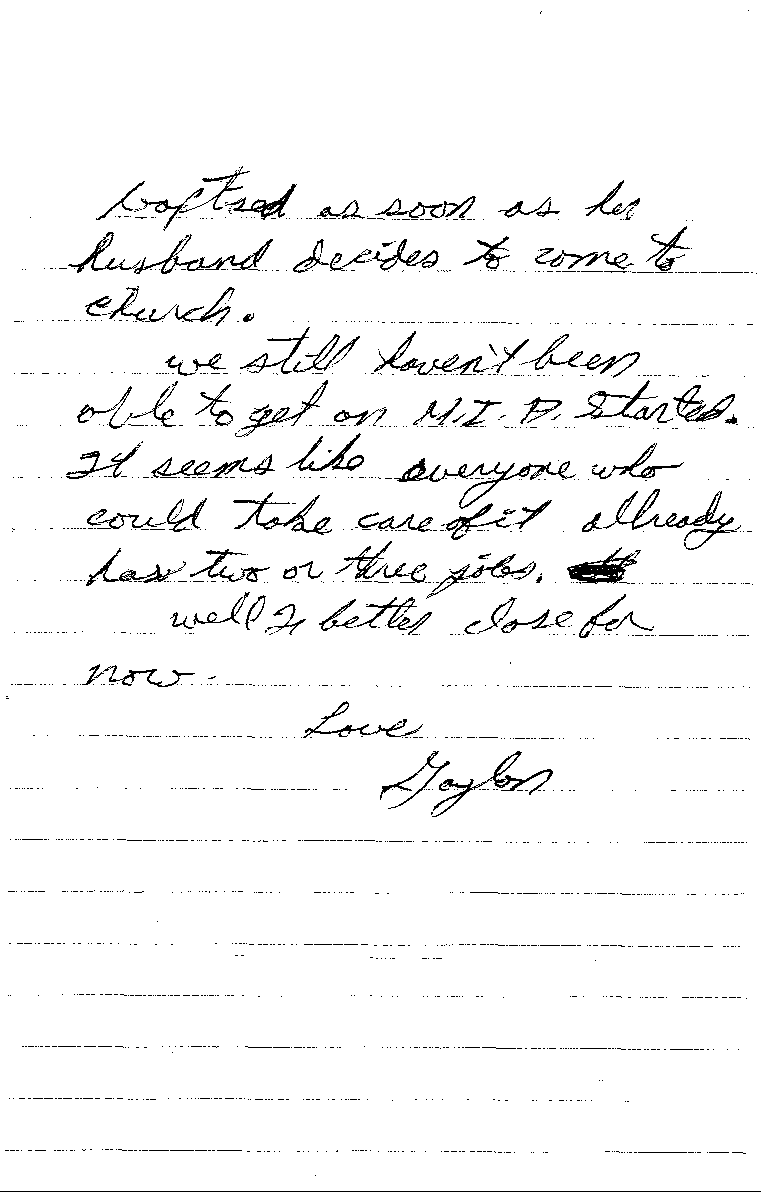 baptsed as soon as her
husband decides to come to
church.
we still haven't been
able to get an M.I.A. Started.
It seems like everyone who
could take care of it allready
has two or three jobs.
well I better close for
now.
Love
Gaylon